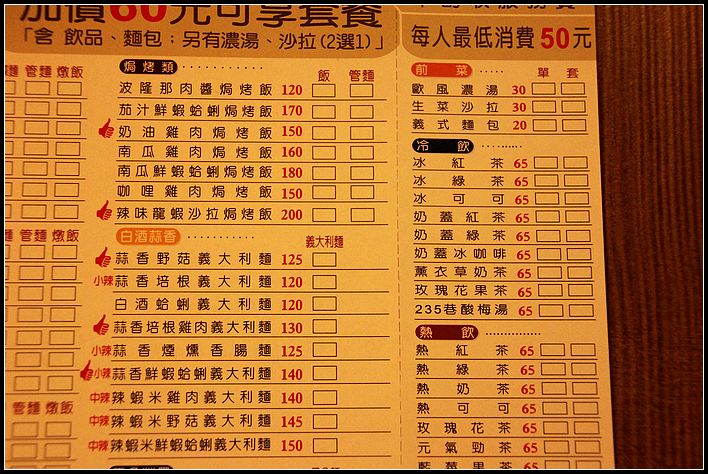 加價60元可享套餐
「含 飲品、麵包；另有濃湯、沙拉(2選1)」
管麵 燉飯
管麵 燉飯
管麵 燉飯
焗烤類 ‧‧‧‧‧‧‧‧‧‧‧ 飯 管麵
波隆那肉醬焗烤飯 120
茄汁鮮蝦蛤蜊焗烤飯 170
奶油雞肉焗烤飯 150
南瓜雞肉焗烤飯 160
南瓜鮮蝦蛤蜊焗烤飯 180
咖哩雞肉焗烤飯 150
辣味龍蝦沙拉焗烤飯 200
白酒蒜香 ‧‧‧‧‧‧‧‧‧‧‧ 義大利麵
蒜香野菇義大利麵 125
小辣 蒜香培根義大利麵 120
白酒蛤蜊義大利麵 120
蒜香培根雞肉義大利麵 130
小辣 蒜香煙燻香腸麵 125
小辣 蒜香鮮蝦蛤蜊義大利麵 140
中辣 辣蝦米雞肉義大利麵 140
中辣 辣蝦米野菇義大利麵 145
中辣 辣蝦米鮮蝦蛤蜊義大利麵 150
每人最低消費50元
前菜 ‧‧‧‧‧ 單 套
歐風濃湯 30
生菜沙拉 30
義式麵包 20
冷飲 ‧‧‧‧‧‧‧‧
冰紅茶 65
冰綠茶 65
冰可可 65
奶蓋紅茶 65
奶蓋綠茶 65
奶蓋冰咖啡 65
薰衣草奶茶 65
玫瑰花果茶 65
235巷酸梅湯 65
熱飲 ‧‧‧‧‧‧‧‧‧‧‧‧‧
熱紅茶 65
熱綠茶 65
熱奶茶 65
熱可可 65
玫瑰花茶 65
元氣勁茶 65
藍莓果茶 65